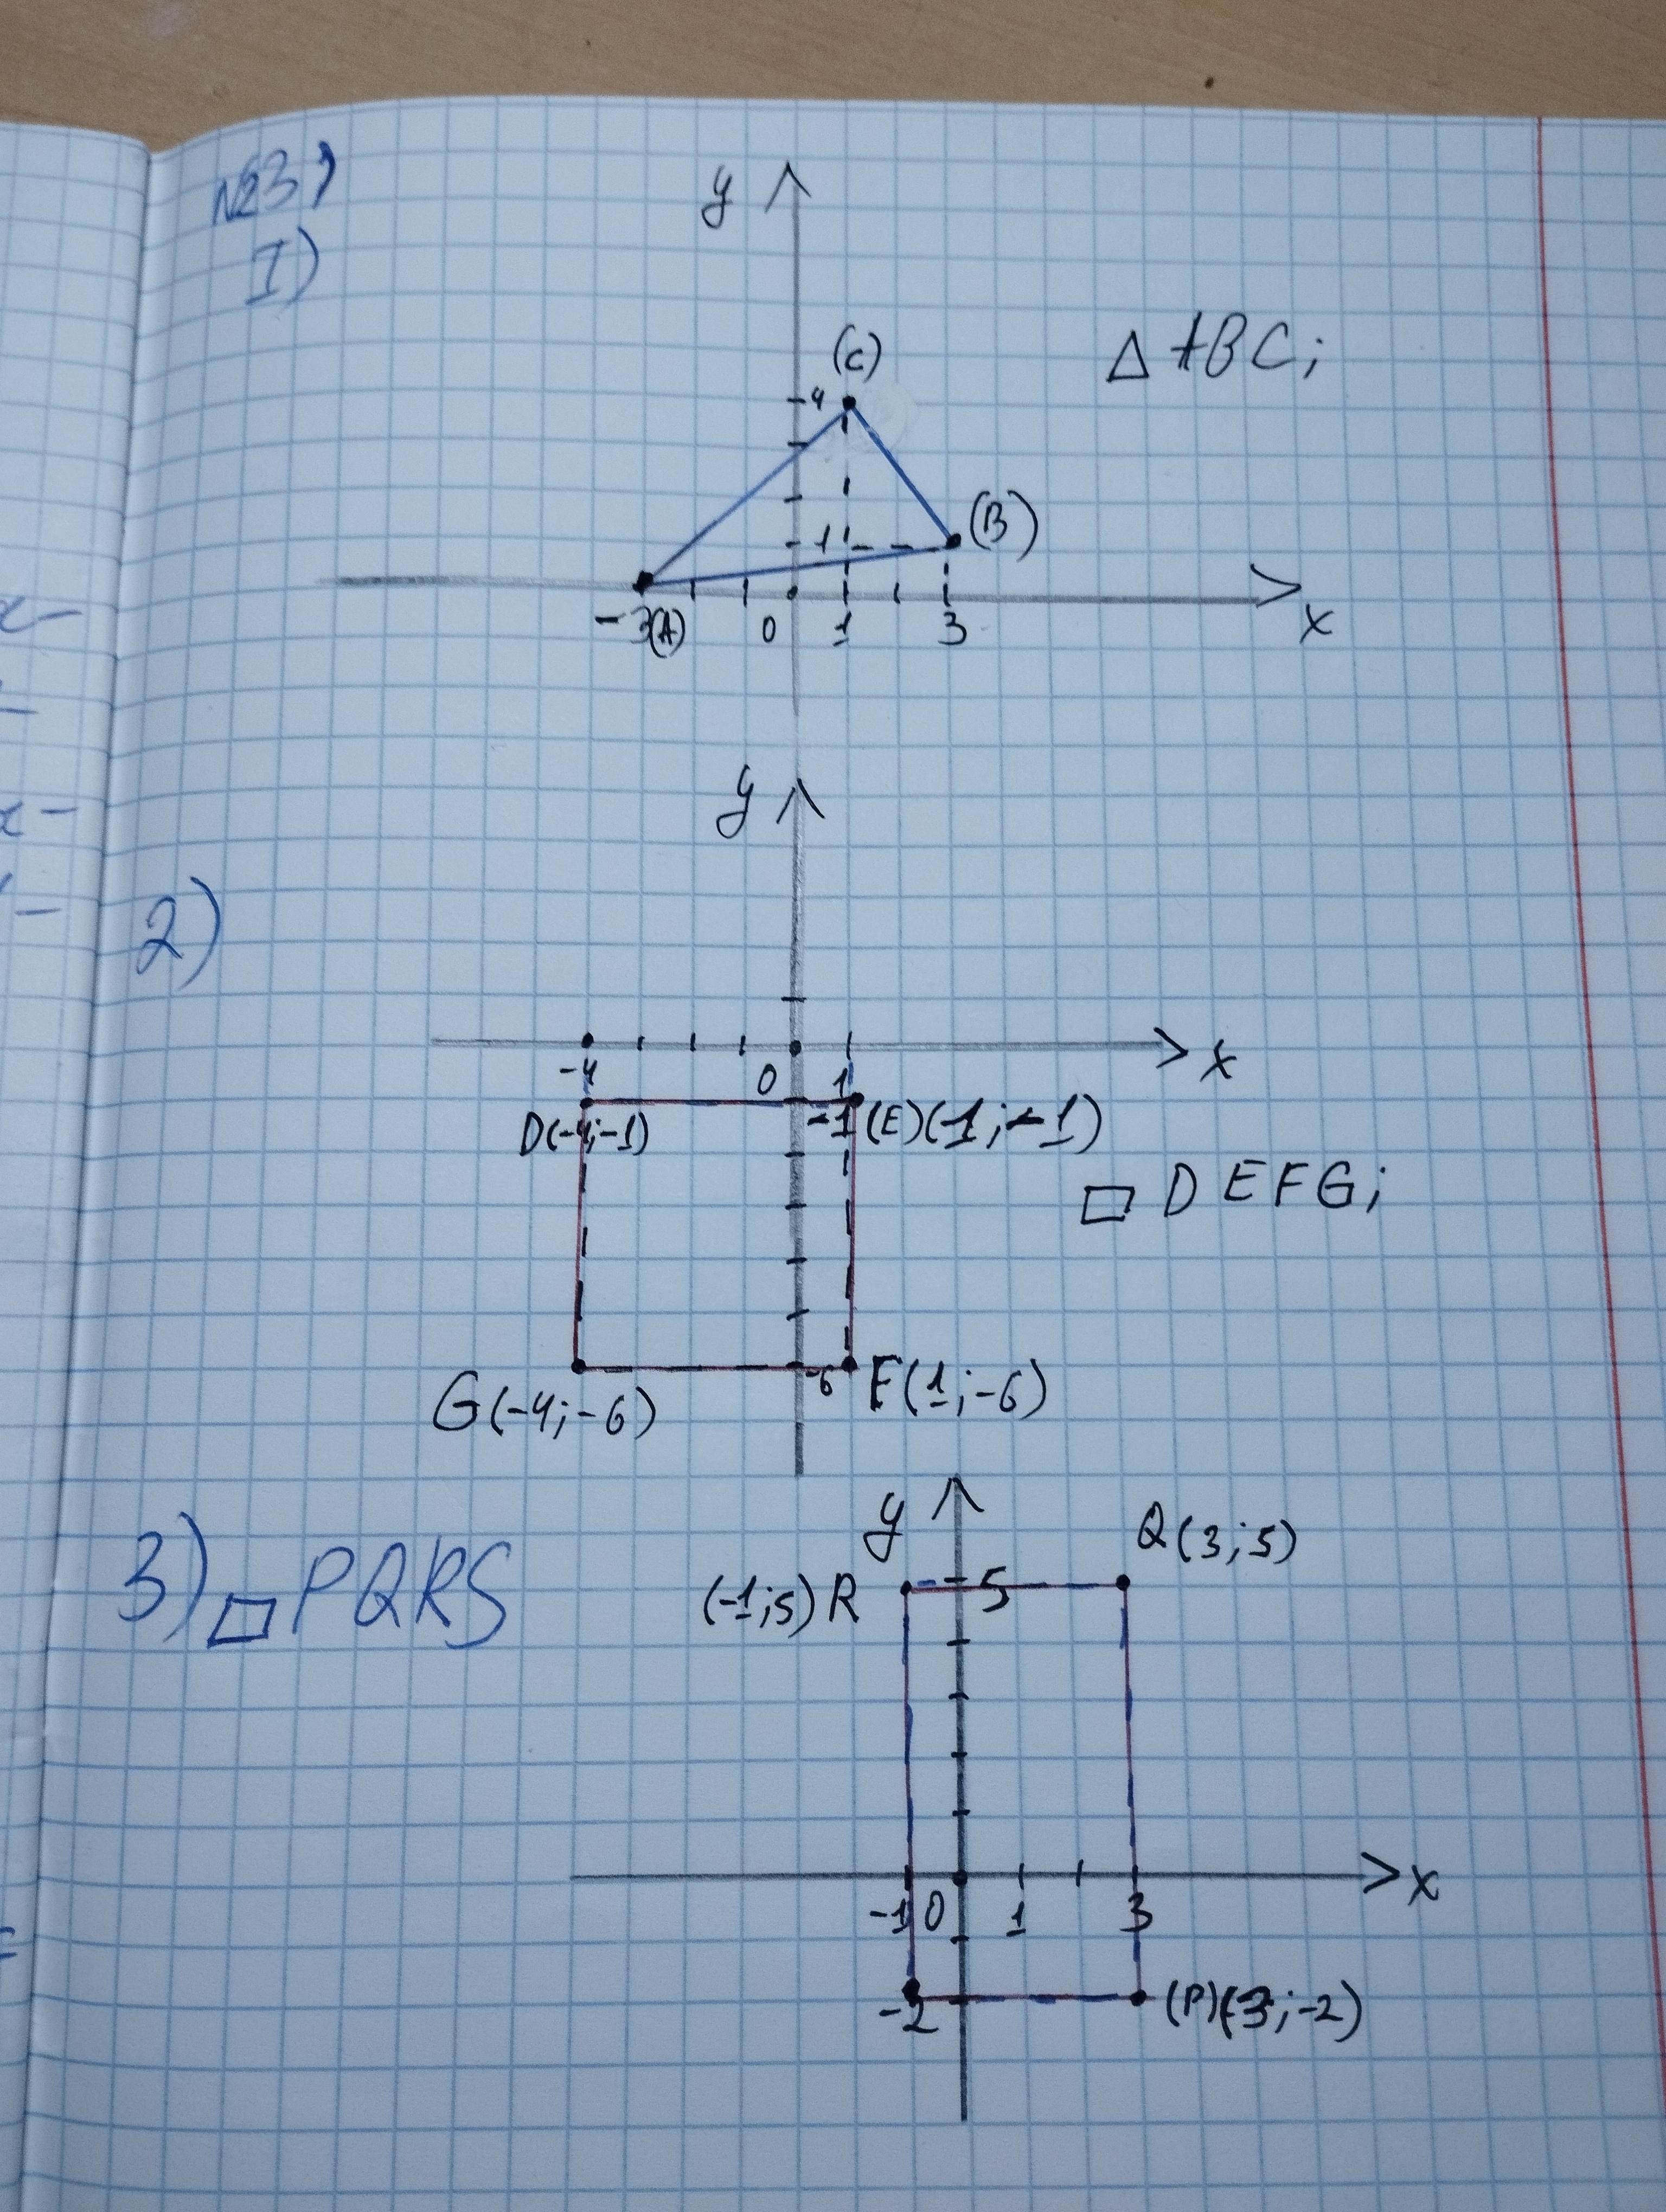 №3)
1)
y
(C)
△ABC;
4
(B)
1
-3(A) 0 1 3
x
y
2)
-4 0 1
x
D(-4;-1) -1 (E)(1;-1)
□ DEFG;
-6
G(-4;-6) F(1;-6)
3) □PQRS
y
Q(3;5)
(-1;5)R 5
x
-1 0 1 3
-2 (P)(3;-2)